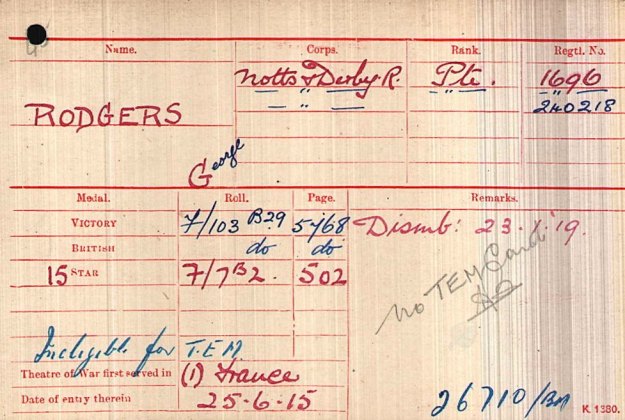 Name. Corps. Rank. Regtl. No.
Notts & Derby. R. Pte. 1696
— " — — " — 240218
RODGERS
George
Medal. Roll. Page. Remarks.
VICTORY 7/103 B29 5768 Disemb: 23.1.'19.
BRITISH do do
15 STAR 7/7B2. 502
No TEM Card
Ineligible for T.E.M.
Theatre of War first served in (1) France
Date of entry therein 25-6-15
26710/BM
K. 1380.